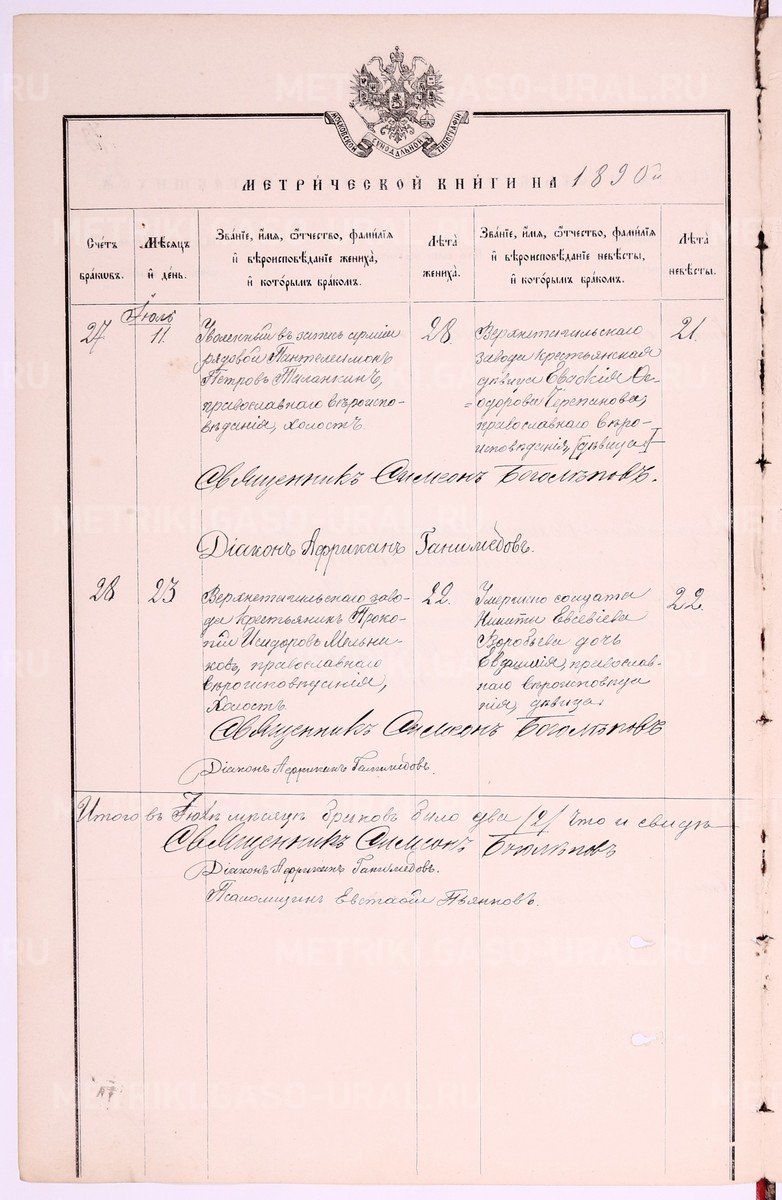 МОСКОВСКОЙ СѴНОДАЛЬНОЙ ТИПОГРАФІИ
МЕТРИ́ЧЕСКОЙ КНИ́ГИ НА 1890 й
Сче́тъ бра́ковъ.
Мѣ́сяцъ и́ день.
Зва́нїе, и́мя, ѻ́тчество, фами́лїя и́ вѣроисповѣ́данїе жениха̀, и́ кото́рымъ бра́комъ.
Лѣ́та жениха̀.
Зва́нїе, и́мя, ѻ́тчество, фами́лїя и́ вѣроисповѣ́данїе невѣ́сты, и́ кото́рымъ бра́комъ.
Лѣ́та невѣ́сты.
Іюль
27
11.
Уволенный въ запасъ арміи
рядовой Пантелеимонъ
Петровъ Таланкинъ,
православнаго вѣроиспо-
вѣданія, холостъ.
28
Верхнетагильскаго
завода крестьянская
дѣвица Евдокія Ѳе-
одорова Черепанова,
православнаго вѣро-
исповѣданія, дѣвица
21.
Священникъ Симеонъ Боголѣповъ.
Діаконъ Африканъ Ганимедовъ.
28
23
Верхнетагильскаго заво-
да крестьянинъ Проко-
пій Исидоровъ Мельни-
ковъ, православнаго
вѣроисповѣданія,
холостъ.
22.
Умершаго солдата
Никиты Евсевіева
Воробьева дочь
Евдокія, православ-
наго вѣроисповѣда
нія, дѣвица.
22.
Священникъ Симеонъ Боголѣповъ
Діаконъ Африканъ Ганимедовъ.
Итого въ Іюлѣ мѣсяцѣ браковъ было два /2/ что и свидѣ
Священникъ Симеонъ Боголѣповъ
Діаконъ Африканъ Ганимедовъ.
Псаломщикъ Евстафій Пьянковъ.
METRIKI.GASO-URAL.RU